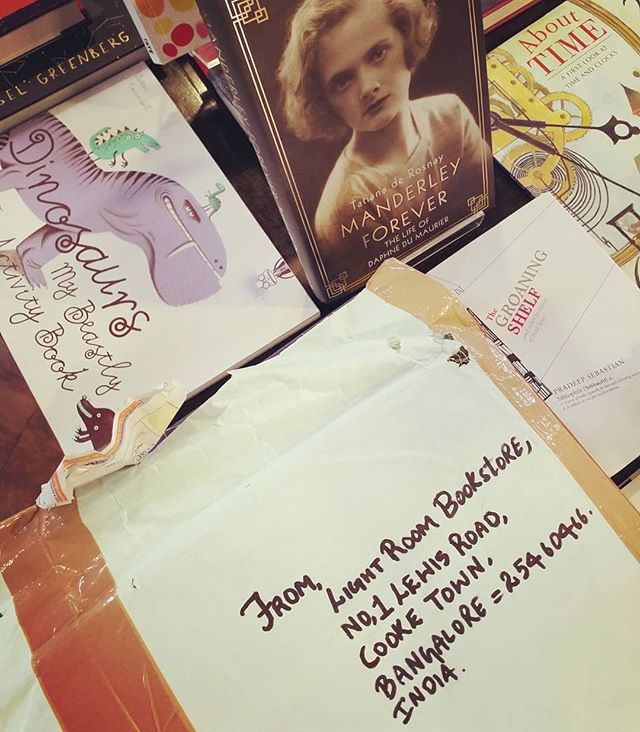 SEL GREENBERG
Dinosaurs
My Beastly
Activity Book
ANDERLEY
Tatiana de Rosnay
MANDERLEY
FOREVER
THE LIFE OF
DAPHNE DU MAURIER
About
TIME
A FIRST LOOK AT
TIME AND CLOCKS
The
GROANING
SHELF
PRADEEP SEBASTIAN
FROM,
LIGHT ROOM BOOKSTORE,
NO,1 LEWIS ROAD,
COOKE TOWN,
BANGALORE = 25460466.
INDIA.